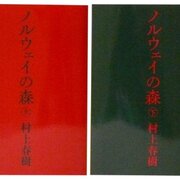 ノルウェイの森 上 村上春樹
ノルウェイの森 下 村上春樹